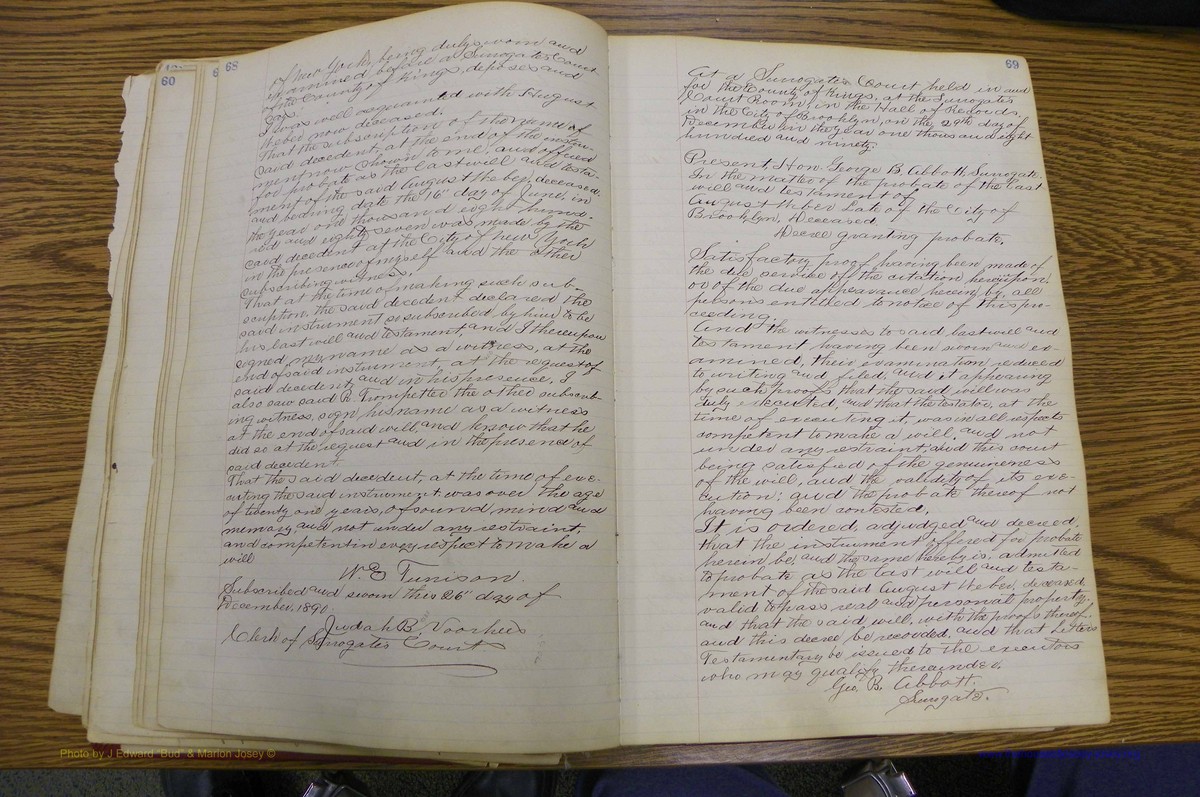 60
6
68
of New York, being duly sworn and
examined before a Surrogates Court
of the County of Kings, deposes and
says.
I was well acquainted with August
Weber now deceased.
That the subscription of the name of
said decedent at the end of the instru-
ment now shown to me, and offered
for probate as the last will and testa-
ment of the said August Weber, deceased,
and bearing date the 16" day of June, in
the year one thousand eight hund-
red and eighty seven was made by the
said decedent at the City of New York
in the presence of myself and the other
subscribing witness.
That at the time of making such sub-
scription, the said decedent declared the
said instrument so subscribed by him to be
his last will and testament and I thereupon
signed my name as a witness, at the
end of said instrument, at the request of
said decedent, and in his presence. I
also saw said R. Trumpetter the other subscrib-
ing witness, sign his name as a witness
at the end of said will, and know that he
did so at the request and in the presence of
said decedent.
That the said decedent, at the time of exe-
cuting the said instrument was over the age
of twenty one years, of sound mind and
memory and not under any restraint,
and competent in every respect to make a
will
W. E Tunison.
Subscribed and sworn this 26" day of
December, 1890.
Judah B. Voorhees
Clerk of Surrogates Court
69
At a Surrogate's Court held in and
for the County of Kings, at the Surrogates
Court Room, in the Hall of Records,
in the City of Brooklyn, on the 29th day of
December in the year one thousand eight
hundred and ninety.
Present, Hon. George B. Abbott, Surrogate.
In the matter of the probate of the last
will and testament of
August Weber Late of the City of
Brooklyn, Deceased.
Decree granting probate.
Satisfactory proof having been made of
the due service of the citation hereupon,
or of the due appearance herein by all
persons entitled to notice of this pro-
ceeding.
And the witnesses to said last will and
testament having been sworn and ex-
amined, their examination reduced
to writing and filed, and it appearing
by such proofs that the said will was
duly executed, and that the testator, at the
time of executing it, was in all respects
competent to make a will, and not
under any restraint, and this court
being satisfied of the genuineness
of the will, and the validity of its exe-
cution: and the probate thereof not
having been contested.
It is ordered, adjudged and decreed,
that the instrument offered for probate
herein be, and the same hereby is, admitted
to probate as the last will and testa-
ment of the said August Weber, deceased
valid to pass real and personal property,
and that the said will, with the proofs thereof,
and this decree be recorded, and that Letters
Testamentary be issued to the executors
who may qualify thereunder.
Geo. B. Abbott.
Surrogate.
Photo by J Edward "Bud" & Marion Josey ©